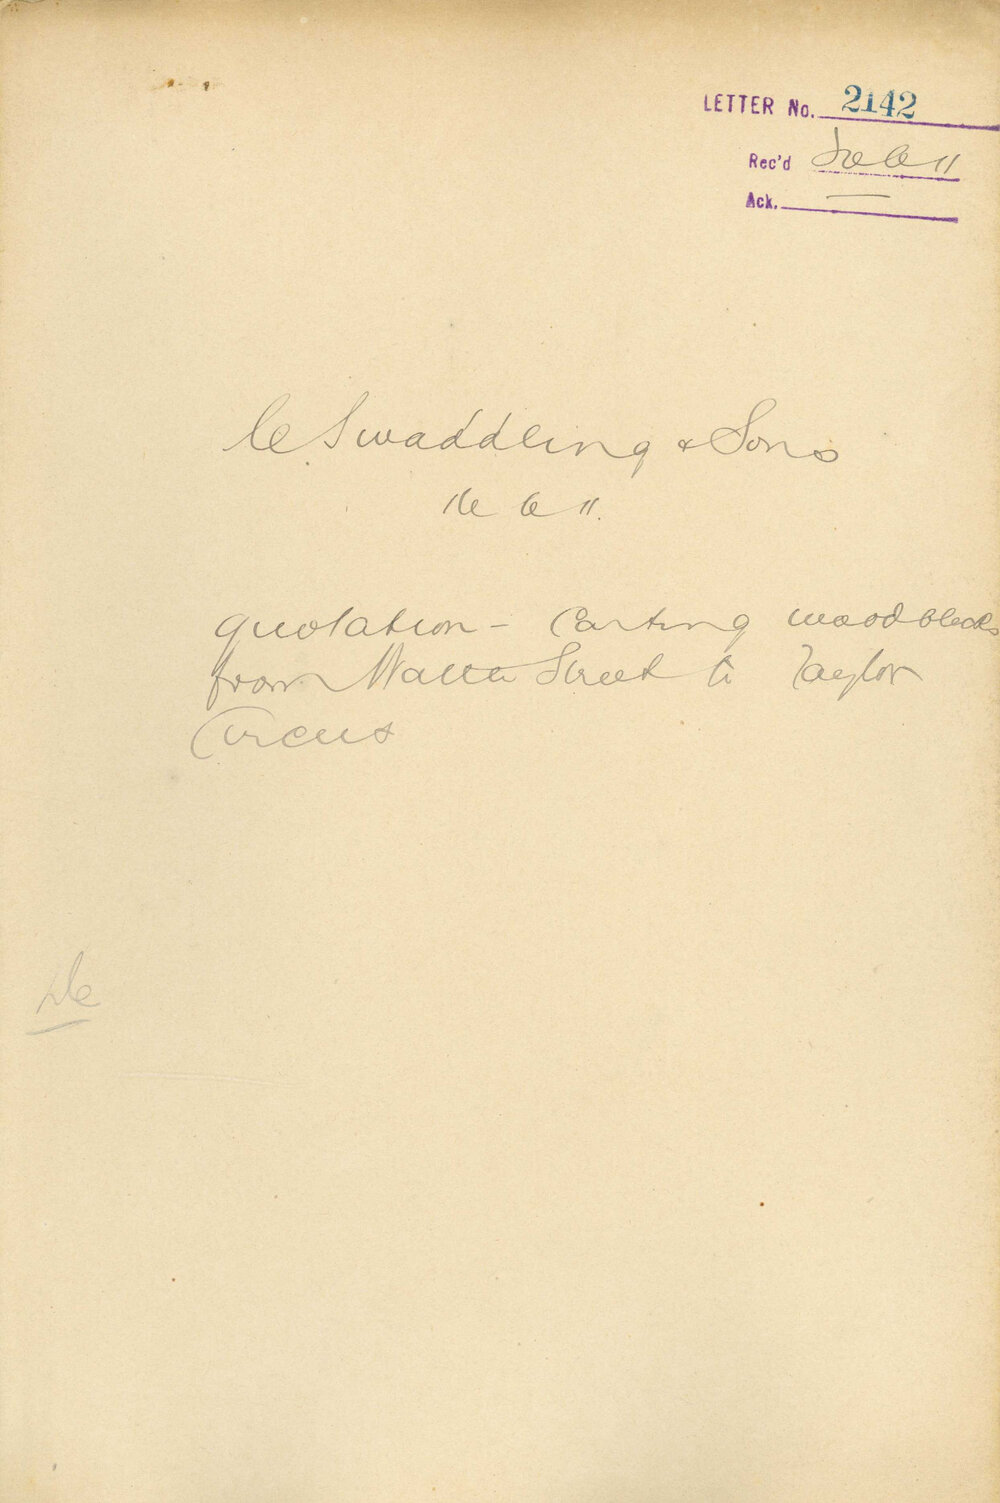 LETTER No. 2142
Rec'd 6 11
Ack. —
C. Swaddling & Sons
16 6 11.
quotation - Carting woodblocks
from Street to Taylor
Circus